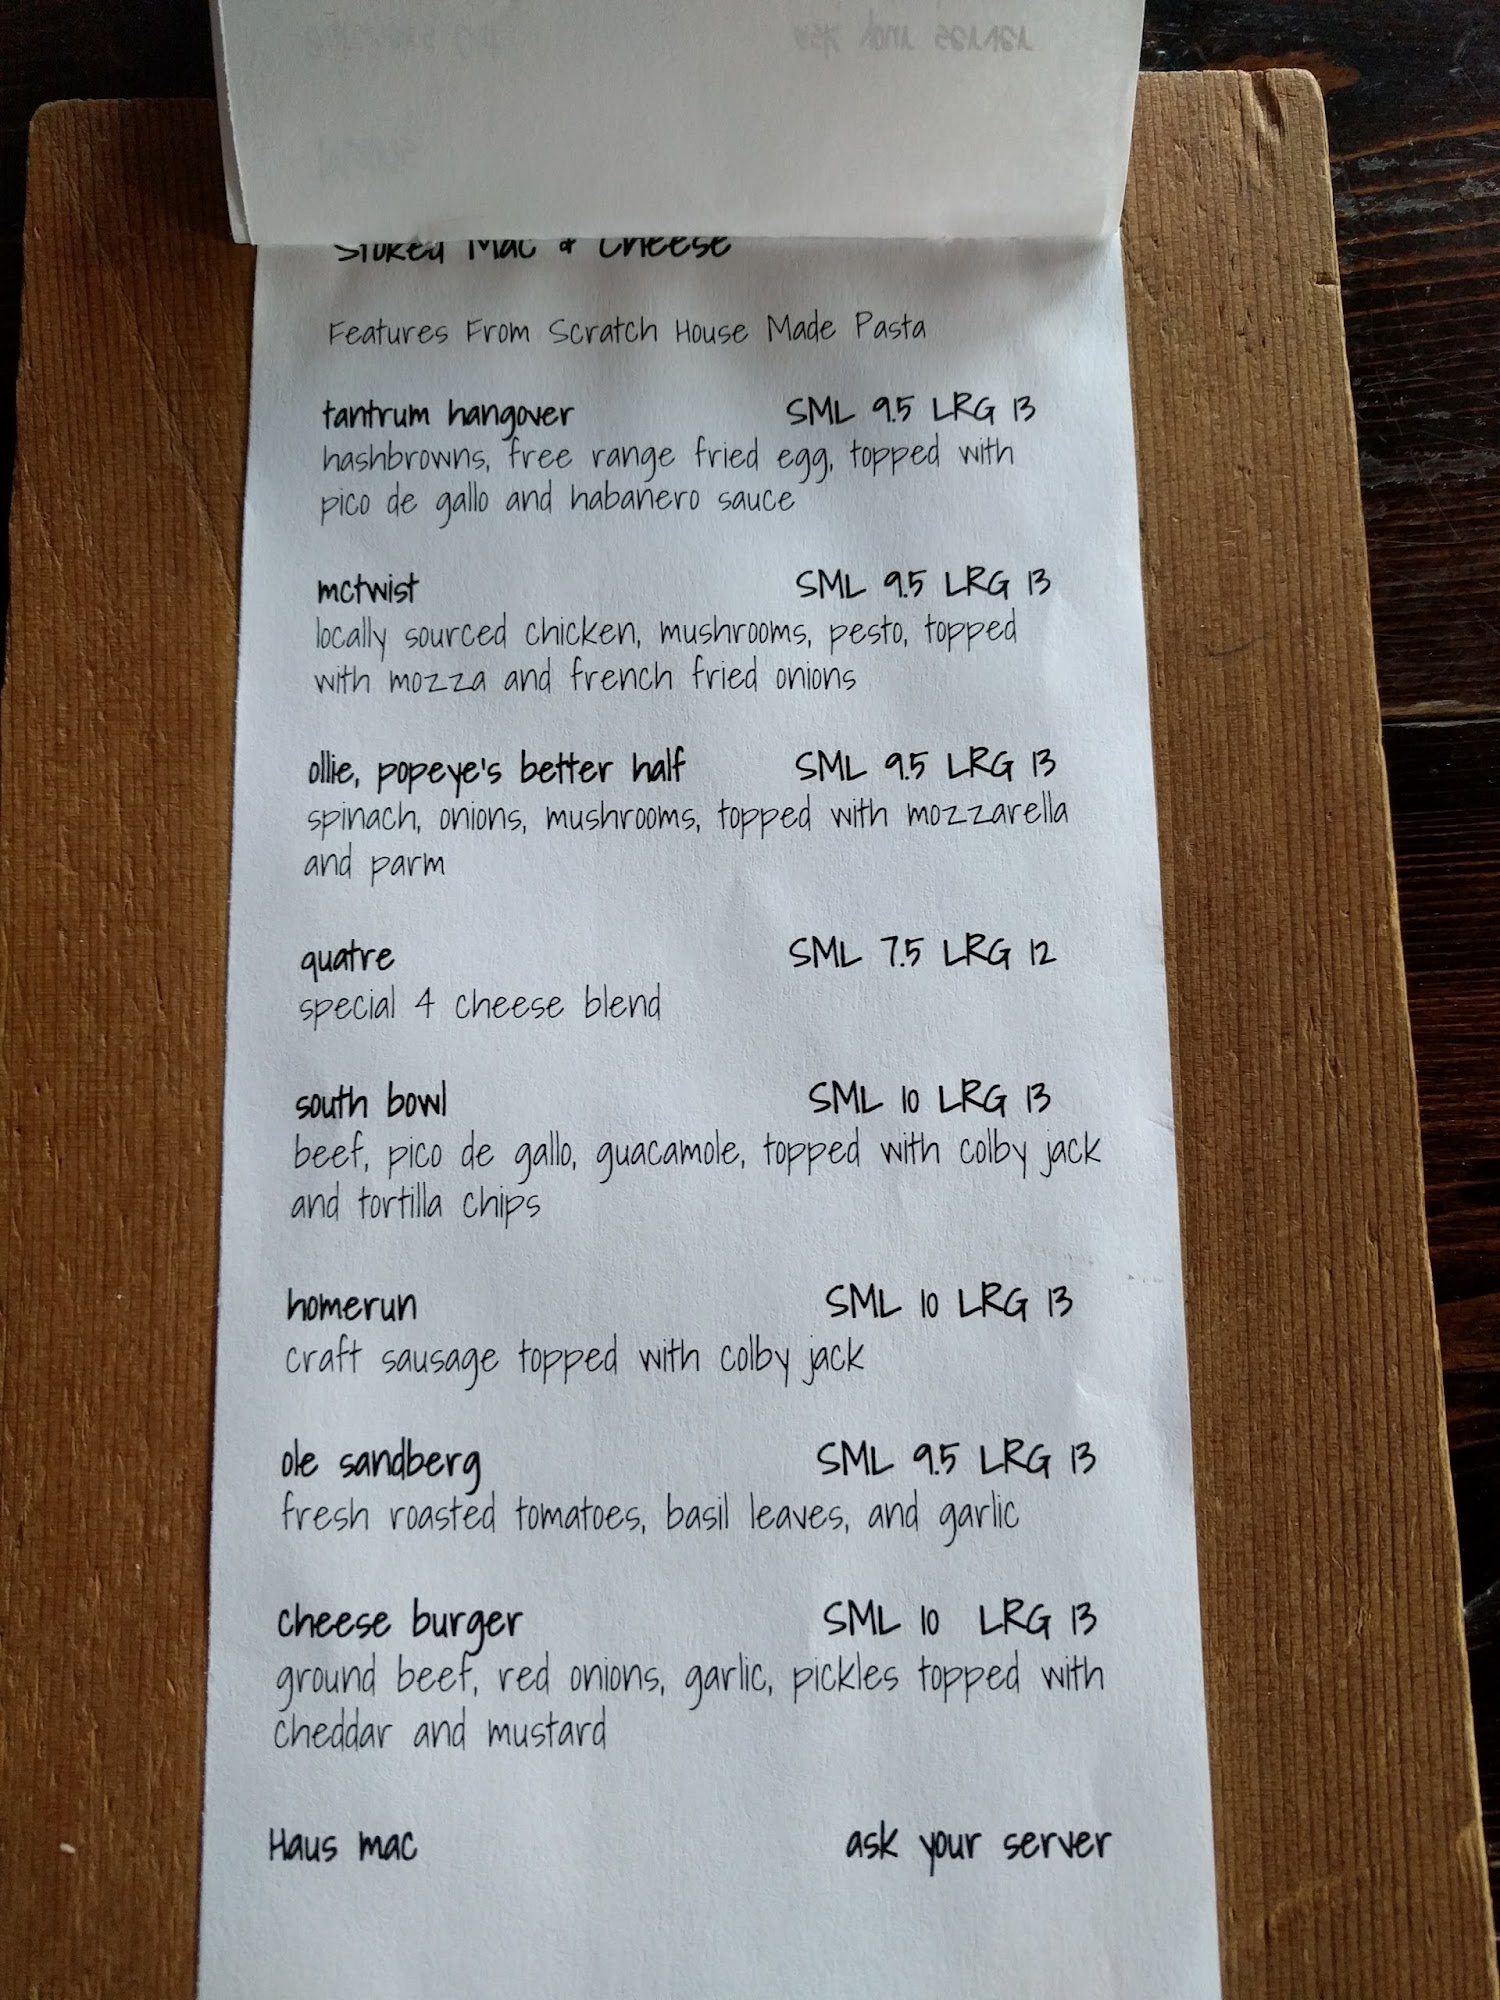 Stoked Mac & Cheese
Features From Scratch House Made Pasta
tantrum hangover SML 9.5 LRG 13
hashbrowns, free range fried egg, topped with
pico de gallo and habanero sauce
mctwist SML 9.5 LRG 13
locally sourced chicken, mushrooms, pesto, topped
with mozza and french fried onions
ollie, popeye's better half SML 9.5 LRG 13
spinach, onions, mushrooms, topped with mozzarella
and parm
quatre SML 7.5 LRG 12
special 4 cheese blend
south bowl SML 10 LRG 13
beef, pico de gallo, guacamole, topped with colby jack
and tortilla chips
homerun SML 10 LRG 13
craft sausage topped with colby jack
ole sandberg SML 9.5 LRG 13
fresh roasted tomatoes, basil leaves, and garlic
cheese burger SML 10 LRG 13
ground beef, red onions, garlic, pickles topped with
cheddar and mustard
Haus mac ask your server